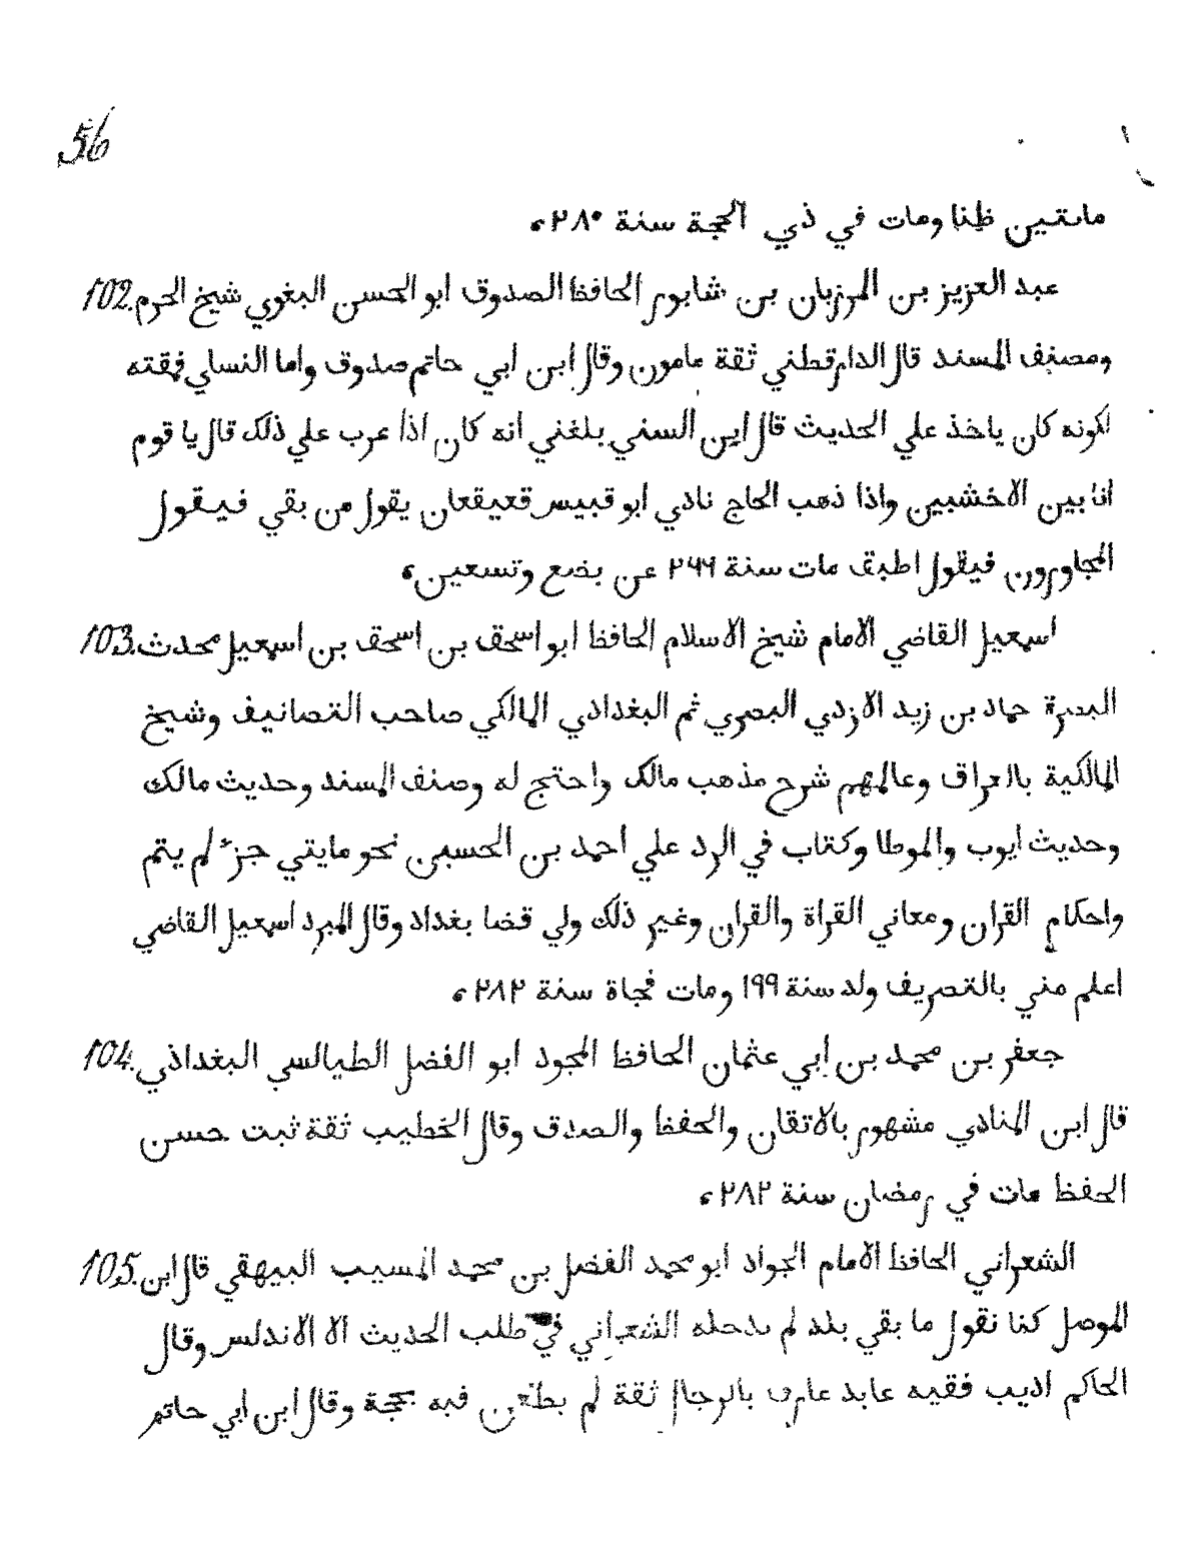 56
ماىتىين ظنا ومات في ذي الحجة سنة ٢٨٠
102. عبد العزيز بن المرزبان بن شابور الحافظ الصدوق ابو الحسن البغوي شيخ الحرم
ومصنف المسند قال الدارقطني ثقة مامون وقال ابن ابي حاتم صدوق واما النسلي فمقته
لكونه كان ياخذ علي الحديث قال اين السني بلغني انه كان اذا عرب علي ذلك قال يا قوم
انا بين الاخشبين واذا ذهب الحاج نادي ابو قبيس قعيقعان يقول من بقي فيقول
المجاورون فيقول اطبق مات سنة عن بضع وتسعين
103. اسمعيل القاضي الامام شيخ الاسلام الحافظ ابو اسحق بن اسحق بن اسمعيل محدث
البصرة حماد بن زيد الازدي البصري ثم البغدادي المالكي صاحب التصانيف وشيخ
المالكية بالعراق وعالمهم شرح مذهب مالك واحتج له وصنف المسند وحديث مالك
وحديث ايوب والموطا وكتاب في الرد علي احمد بن الحسين نحو مايتي جزء لم يتم
واحكام القران ومعاني القراة والقران وغير ذلك ولي قضا بغداد وقال المبرد اسمعيل القاضي
اعلم مني بالتصريف ولد سنة ١٩٩ ومات فجاة سنة ٢٨٢
104. جعفر بن محمد بن ابي عثمان الحافظ المجود ابو الفضل الطيالسي البغداذي
قال ابن المنادي مشهور بالاتقان والحفظ والصدق وقال الخطيب ثقة ثبت حسن
الحفظ مات في رمضان سنة ٢٨٢
105. الشعراني الحافظ الامام الجواد ابو محمد الفضل بن محمد المسيب البيهقي قال ابن
الموصل كنا نقول ما بقي بلد لم يدخله الشعراني في طلب الحديث الا الاندلس وقال
الحاكم اديب فقيه عابد عارف بالرجال ثقة لم يطعن فيه بحجة وقال ابن ابي حاتم